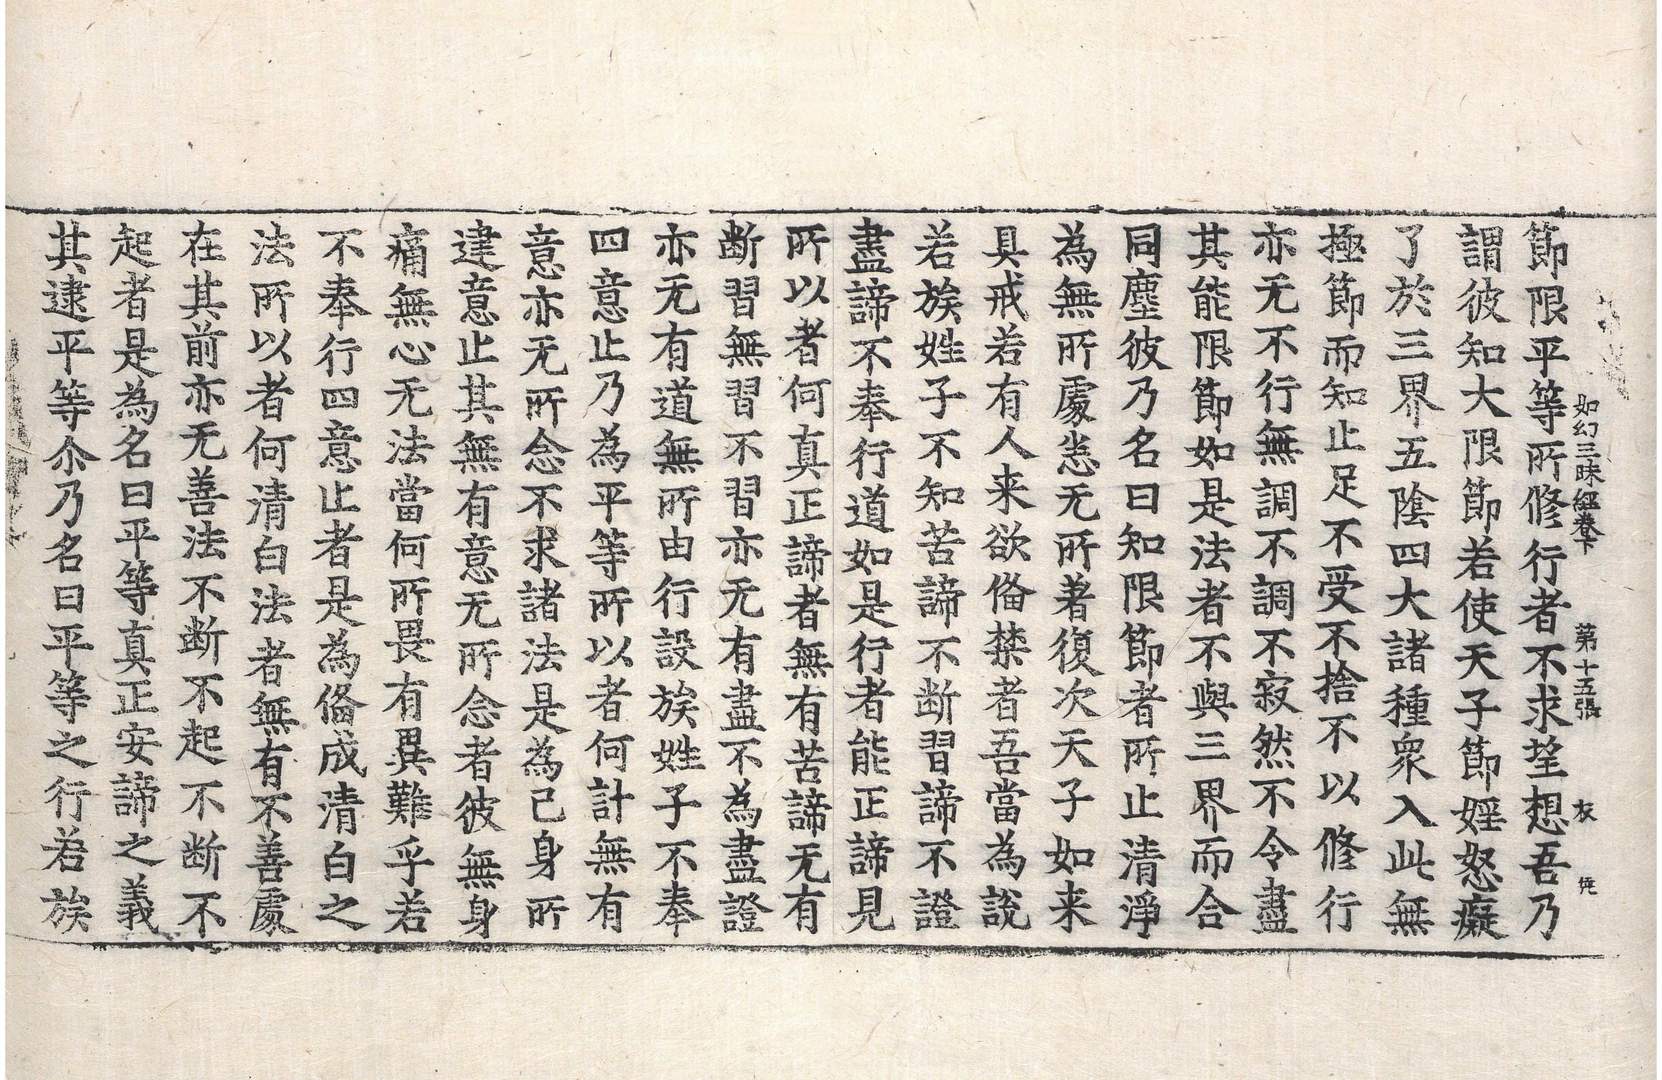 如幻三昧經卷下 第十五張 友
節限平等所修行者不求望想吾乃
謂彼知大限節若使天子節婬怒癡
了於三界五陰四大諸種衆入此無
極節而知止足不受不捨不以修行
亦无不行無調不調不寂然不令盡
其能限節如是法者不與三界而合
同塵彼乃名曰知限節者所止清淨
為無所處恙无所著復次天子如来
具戒若有人来欲俻禁者吾當為說
若族姓子不知苦諦不断習諦不證
盡諦不奉行道如是行者能正諦見
所以者何真正諦者無有苦諦无有
断習無習不習亦无有盡不為盡證
亦无有道無所由行設族姓子不奉
四意止乃為平等所以者何計無有
意亦无所念不求諸法是為己身所
建意止其無有意无所念者彼無身
痛無心无法當何所畏有異難乎若
不奉行四意止者是為俻成清白之
法所以者何清白法者無有不善處
在其前亦无善法不断不起不断不
起者是為名曰平等真正安諦之義
其逮平等尒乃名曰平等之行若族